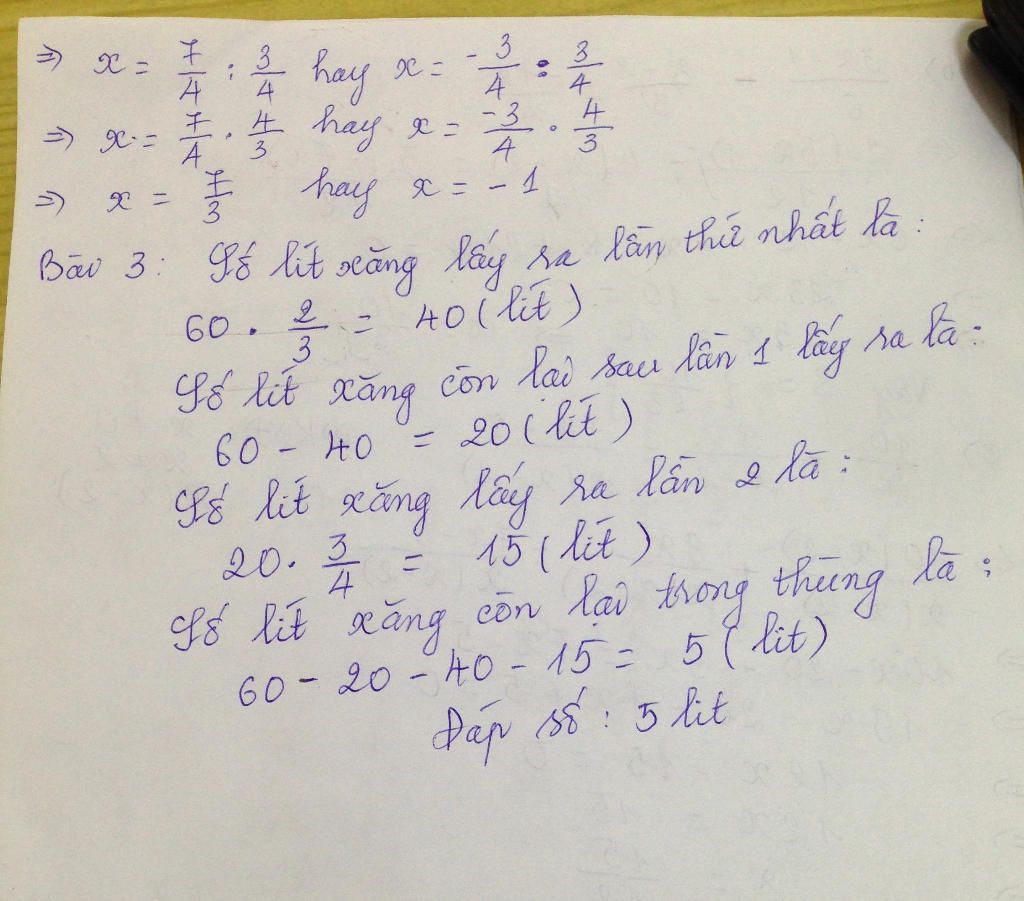 ⇒ x = 7/4 : 3/4 hay x = -3/4 : 3/4
⇒ x = 7/4 . 4/3 hay x = -3/4 . 4/3
⇒ x = 7/3 hay x = - 1
Bài 3 : Số lít xăng lấy ra lần thứ nhất là :
60 . 2/3 = 40 ( lít )
Số lít xăng còn lại sau lần 1 lấy ra là :
60 - 40 = 20 ( lít )
Số lít xăng lấy ra lần 2 là :
20 . 3/4 = 15 ( lít )
Số lít xăng còn lại trong thùng là :
60 - 20 - 40 - 15 = 5 ( lit )
Đáp số : 5 lit